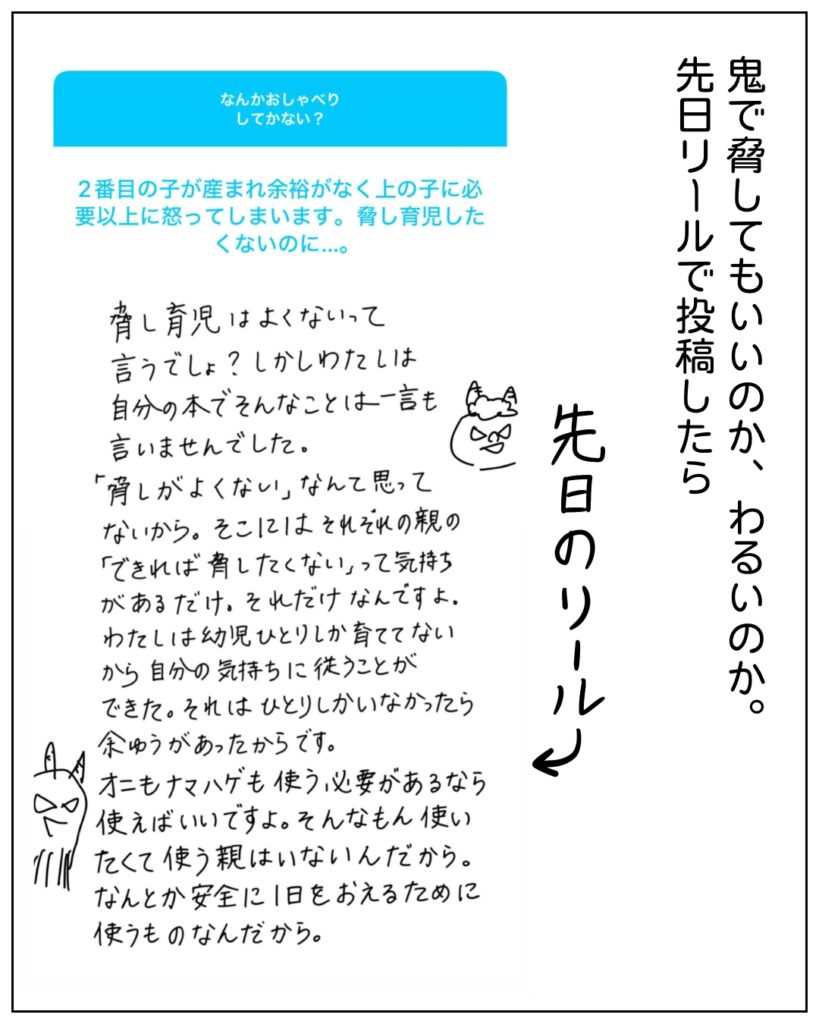 鬼で脅してもいいのか、わるいのか。
先日リールで投稿したら
先日のリール
なんかおしゃべり
してかない？
２番目の子が産まれ余裕がなく上の子に必
要以上に怒ってしまいます。脅し育児した
くないのに…。
脅し育児はよくないって
言うでしょ？しかしわたしは
自分の本でそんなことは一言も
言いませんでした。
「脅しがよくない」なんて思って
ないから。そこにはそれぞれの親の
「できれば脅したくない」って気持ち
があるだけ。それだけなんですよ.
わたしは幼児ひとりしか育ててない
から自分の気持ちに従うことが
できた。それはひとりしかいなかったら
余ゆうがあったからです。
オニもナマハゲも使う必要があるなら
使えばいいですよ。そんなもん使い
たくて使う親はいないんだから。
なんとか安全に1日をおえるために
使うものなんだから。